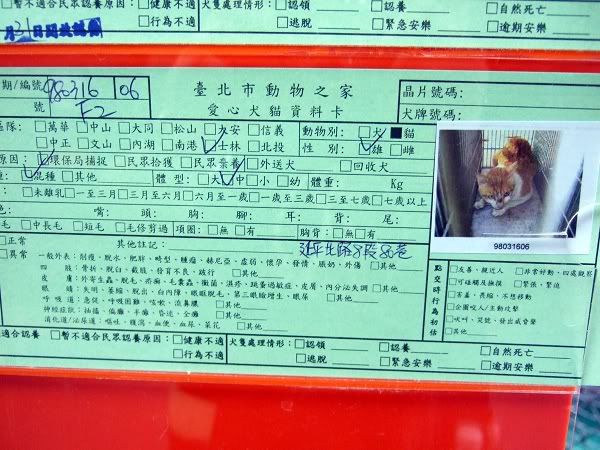 暫不適合民眾認養原因：□健康不適 犬隻處理情形：□認領 □認養 □自然死亡
月31日開放認養 □行為不適 □逃脫 □緊急安樂 □逾期安樂
期/編號 980316 06
號 F2
臺北市動物之家
愛心犬貓資料卡
晶片號碼：
犬牌號碼：
區隊：□萬華 □中山 □大同 □松山 □文安 □信義 動物別：□犬 ■貓
□中正 □文山 □內湖 □南港 □士林 □北投 性 別：□雄 □雌
原因：□環保局捕捉 □民眾拾獲 □民眾棄養 □外送犬 □回收犬
種：□混種 □其他 體 型：□大 □中 □小 □幼 體重： Kg
□未離乳 □一至三月 □三月至六月 □六月至一歲 □一歲至三歲 □三至七歲 □七歲以上
色： 嘴： 頭： 胸： 腳： 耳： 背： 尾：
毛 □中長毛 □短毛 □毛修剪過 項圈：□無 □有 胸背：□無 □有
□正常 其他註記： 延平北路8段86巷
□異常 一般外表：削瘦、脫水、肥胖、畸型、腫瘤、赫尼亞、虛弱、懷孕、發情、脹奶、外傷 □其他
四 肢：骨折、脫臼、截肢、發育不良、跛行 □其他
皮 膚：外寄生蟲、脫毛、疥癬、毛囊蟲、黴菌、濕疹、跳蚤過敏症、皮膚、內分泌失調 □其他
眼 睛：失明、萎縮、脫出、白內障、眼瞼脫毛、第三眼瞼增生、眼屎 □其他
呼吸道：急促、呼吸困難、咳嗽、流鼻膿 □其他
神經症狀：抽搐、偏癱、半癱、昏迷、全癱 □其他
消化道/泌尿道：嘔吐、機瀉、血便、血尿、菜花 □其他
點交時行為初估
□友善、親近人 □非常好動、四處觀察
□可碰觸及撫摸 □緊張、緊迫
□害羞、畏縮、不想移動
□企圖咬人/主動攻擊
□吠叫、哭號、發出威脅聲
□其他
98031606
不適合民眾認養原因：□健康不適 犬隻處理情形：□認領 □認養 □自然死亡
□行為不適 □逃脫 □緊急安樂 □逾期安樂